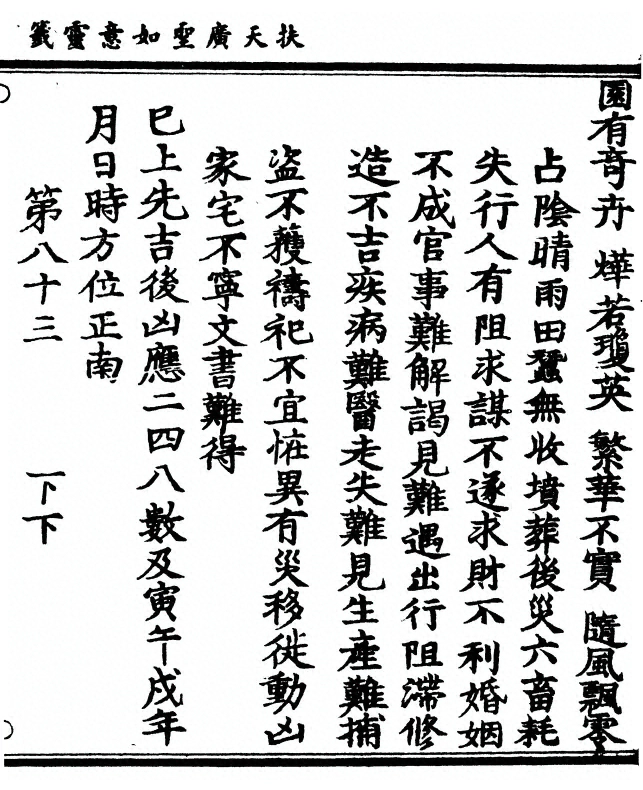 扶天廣聖如意靈籤
園有奇卉 燁若瓊英 繁華不實 隨風飄零
占陰晴雨田蠶無收墳葬後災六畜耗
失行人有阻求謀不遂求財不利婚姻
不成官事難解謁見難遇出行阻滯修
造不吉疾病難醫走失難見生產難捕
盜不獲禱祀不宜恠異有災移徙動凶
家宅不寧文書難得
巳上先吉後凶應二四八數及寅午戌年
月日時方位正南
第八十三 下下